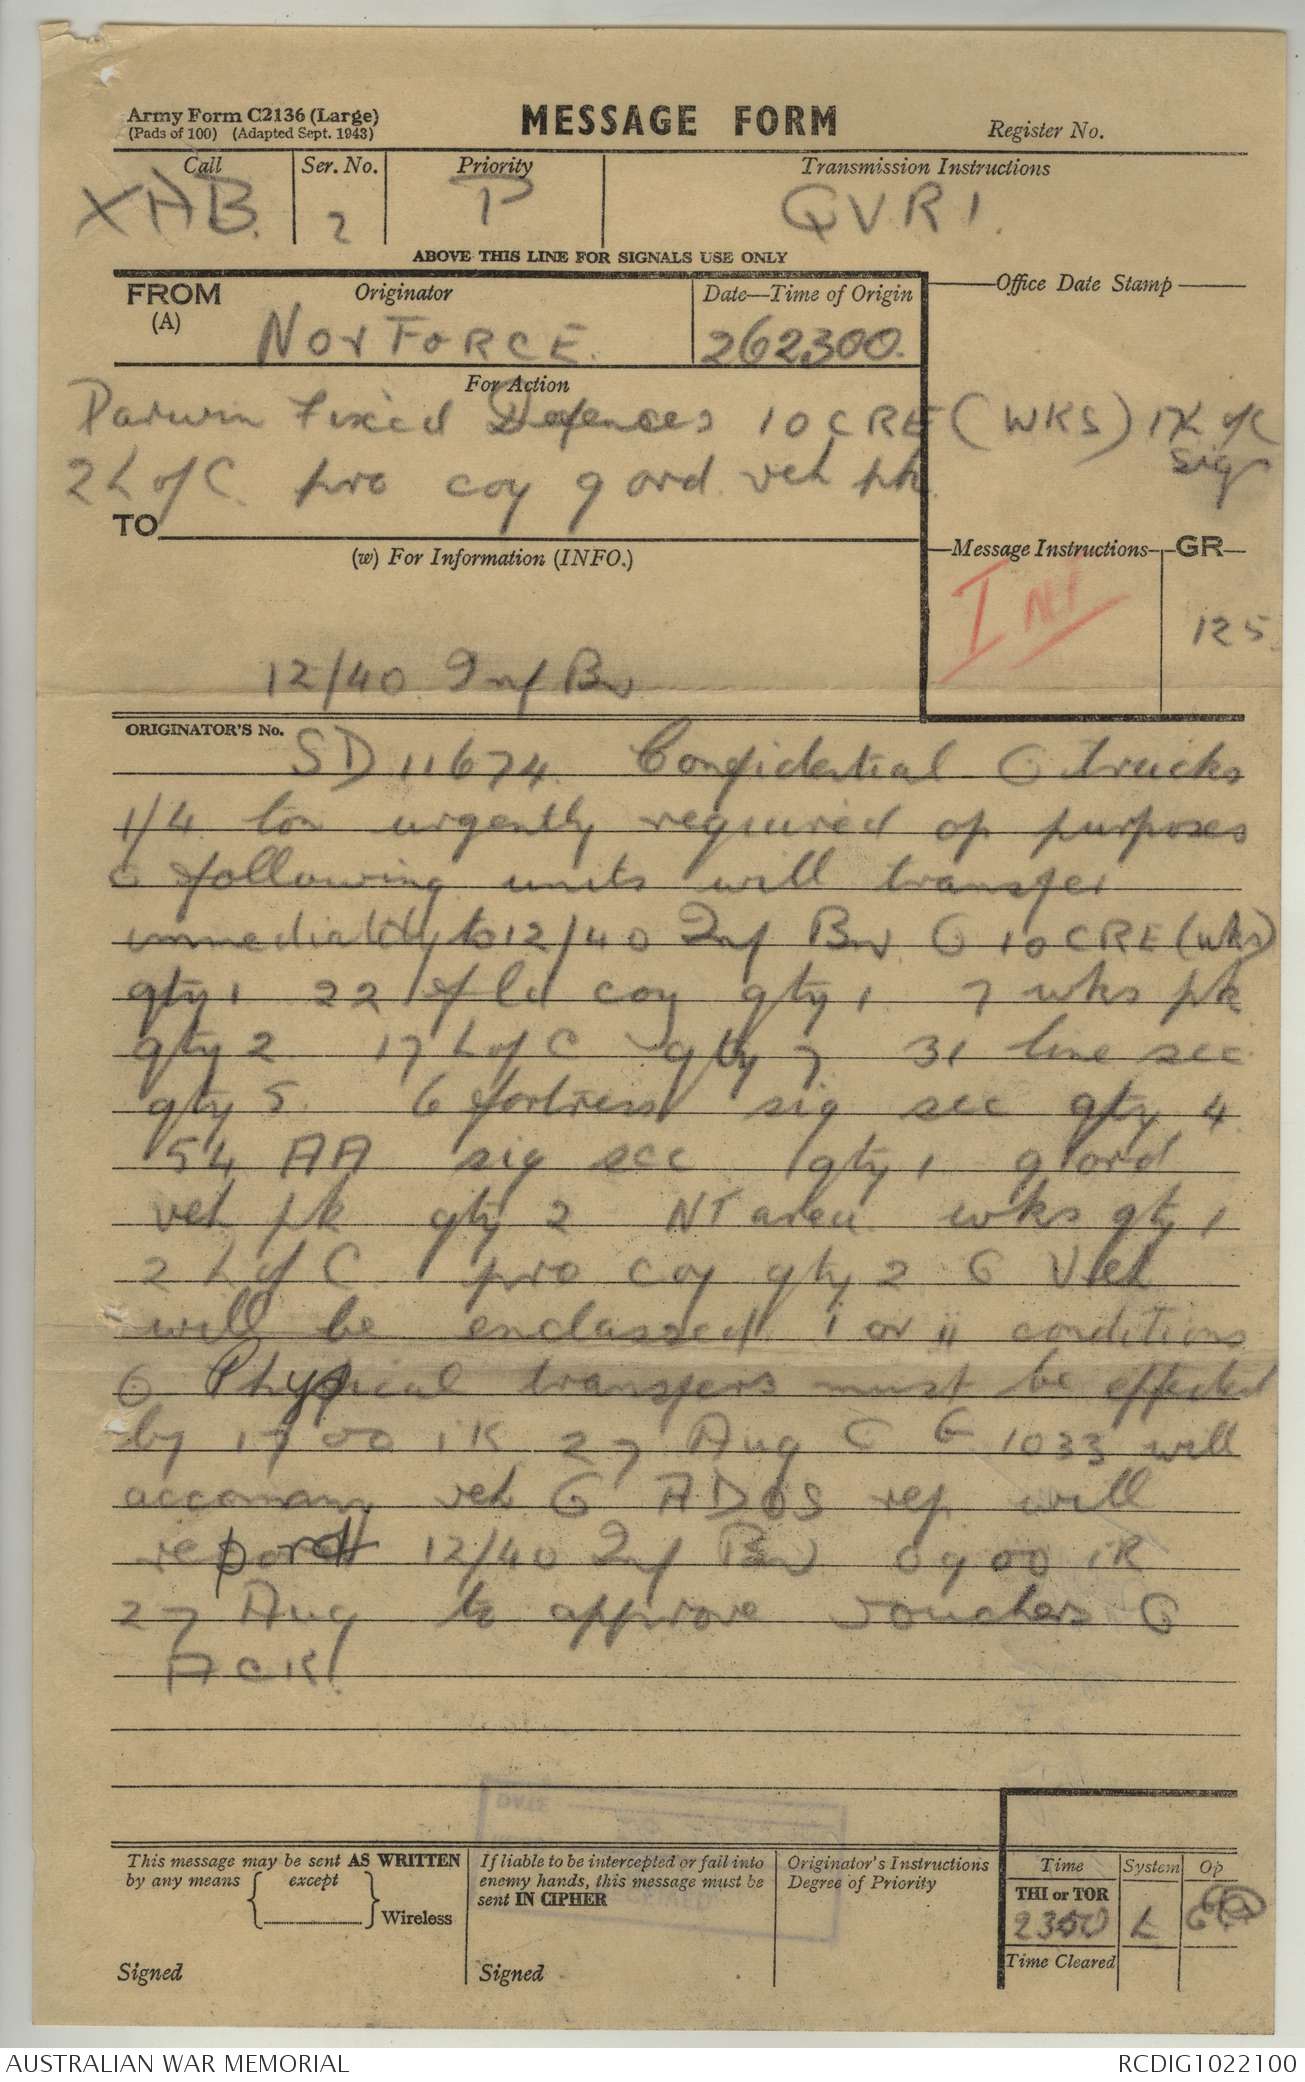 Army Form C2136 (Large)
(Pads of 100) (Adapted Sept. 1943)
MESSAGE FORM
Register No.
Call Ser. No. Priority Transmission Instructions
XAB. 2 P QVR1.
ABOVE THIS LINE FOR SIGNALS USE ONLY
FROM
(A)
Originator
Date—Time of Origin
Office Date Stamp
NORFORCE. 262300.
For Action
Darwin Fixed Defences 10 CRE (WKS) 17 L of C
Sigs
2 L of C. pro coy 9 ord. veh pk.
TO
(w) For Information (INFO.)
Message Instructions GR
INF
125.
12/40 Inf Bn
ORIGINATOR'S No.
SD 11674. Confidential G trucks
1/4 ton urgently required op purposes
G following units will transfer
immediately to 12/40 Inf Bn G 10 CRE (wks)
qty 1 22 fld coy qty 1 7 wks pk
qty 2 17 L of C qty 7 31 line sec
qty 5. 6 fortress sig sec qty 4
54 AA sig sec qty 1 9 ord
veh pk qty 2 NT area wks qty 1
2 L of C pro coy qty 2 G Veh
will be enclassed i or ii conditions
G Physical transfers must be effected
by 1700 iK 27 Aug G G 1033 will
accomany veh G ADOS rep will
report 12/40 Inf Bn 0900 iK
27 Aug to approve vouchers G
ACK.
DATE
This message may be sent AS WRITTEN
by any means except
Wireless
Signed
If liable to be intercepted or fail into
enemy hands, this message must be
sent IN CIPHER
Signed
Originator's Instructions
Degree of Priority
Time System Op
THI or TOR
2300 L
Time Cleared
AUSTRALIAN WAR MEMORIAL
RCDIG1022100